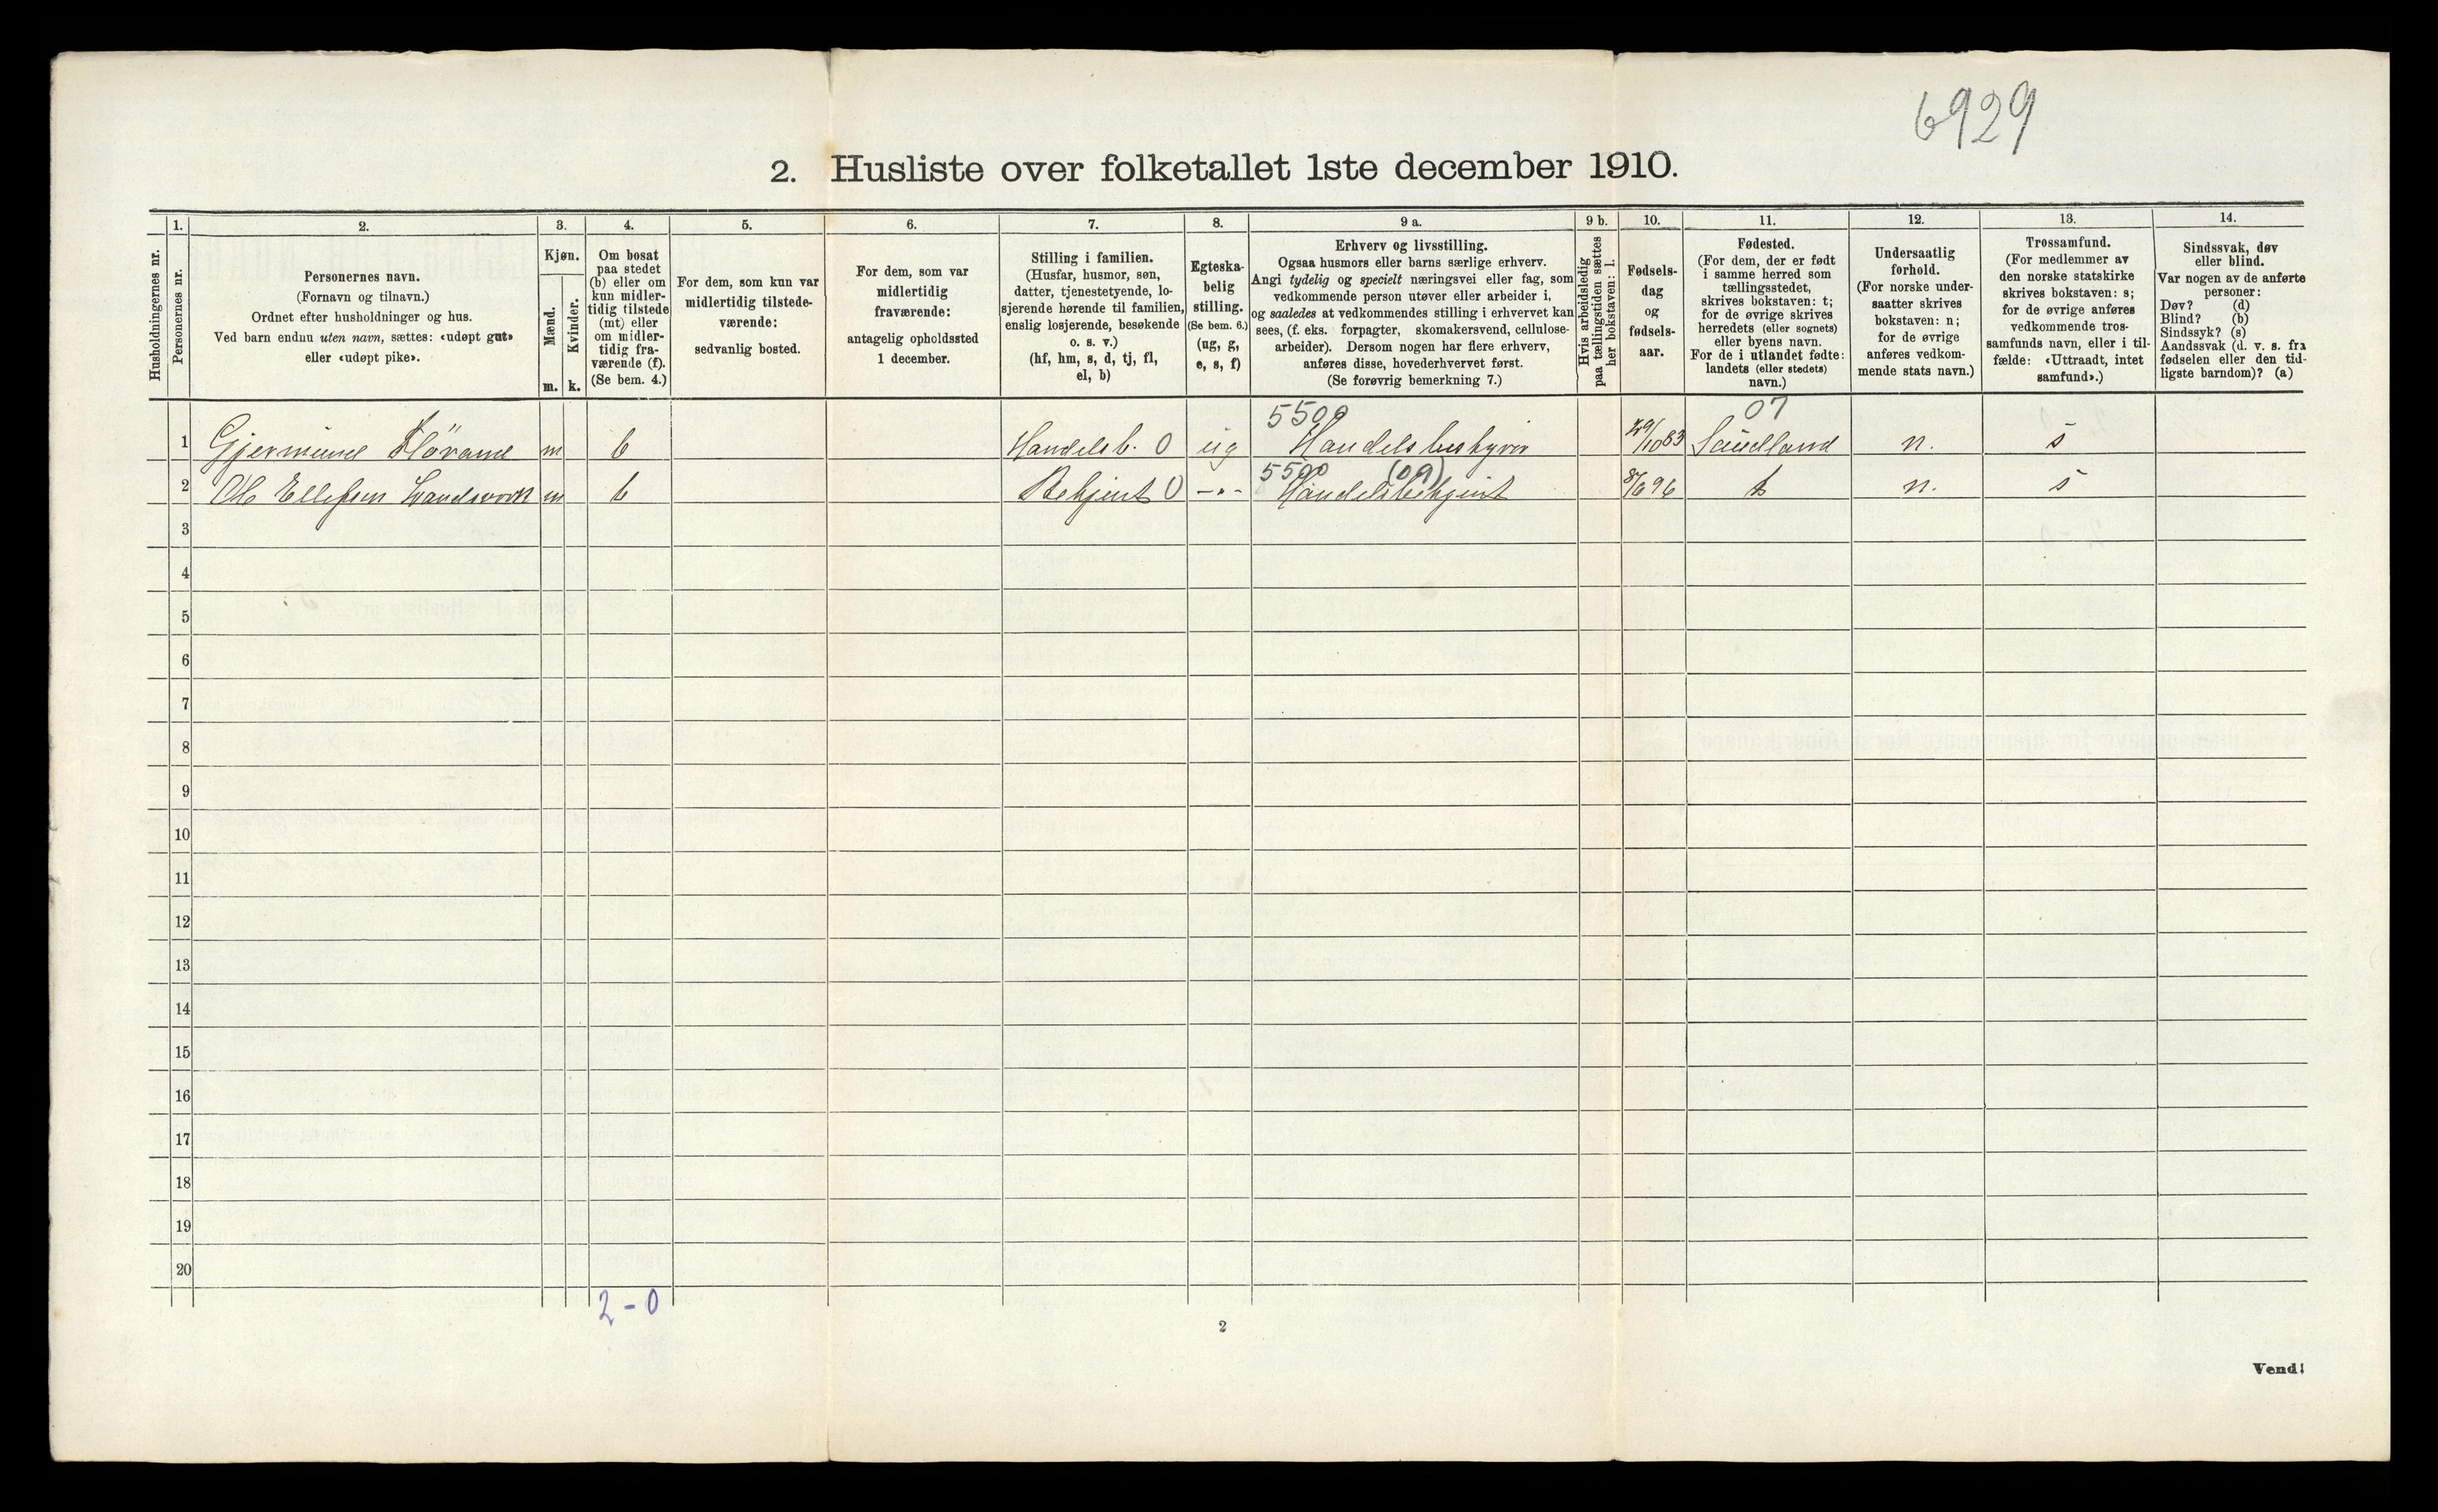 6929
2. Husliste over folketallet 1ste december 1910.
Husholdningernes nr.
1.
Personernes nr.
2.
Personernes navn.
(Fornavn og tilnavn.)
Ordnet efter husholdninger og hus.
Ved barn endnu uten navn, sættes: «udøpt gut»
eller «udøpt pike».
3.
Kjøn.
Mænd.
Kvinder.
m. k.
4.
Om bosat
paa stedet
(b) eller om
kun midler-
tidig tilstede
(mt) eller
om midler-
tidig fra-
værende (f).
(Se bem. 4.)
5.
For dem, som kun var
midlertidig tilstede-
værende:
sedvanlig bosted.
6.
For dem, som var
midlertidig
fraværende:
antagelig opholdssted
1 december.
7.
Stilling i familien.
(Husfar, husmor, søn,
datter, tjenestetyende, lo-
sjerende hørende til familien,
enslig losjerende, besøkende
o. s. v.)
(hf, hm, s, d, tj, fl,
el, b)
8.
Egteska-
belig
stilling.
(Se bem. 6.)
(ug, g,
e, s, f)
9 a.
Erhverv og livsstilling.
Ogsaa husmors eller barns særlige erhverv.
Angi tydelig og specielt næringsvei eller fag, som
vedkommende person utøver eller arbeider i,
og saaledes at vedkommendes stilling i erhvervet kan
sees, (f. eks. forpagter, skomakersvend, cellulose-
arbeider). Dersom nogen har flere erhverv,
anføres disse, hovederhvervet først.
(Se forøvrig bemerkning 7.)
9 b.
Hvis arbeidsledig
paa tællingstiden sættes
her bokstaven: l.
10.
Fødsels-
dag
og
fødsels-
aar.
11.
Fødested.
(For dem, der er født
i samme herred som
tællingsstedet,
skrives bokstaven: t;
for de øvrige skrives
herredets (eller sognets)
eller byens navn.
For de i utlandet fødte:
landets (eller stedets)
navn.)
12.
Undersaatlig
forhold.
(For norske under-
saatter skrives
bokstaven: n;
for de øvrige
anføres vedkom-
mende stats navn.)
13.
Trossamfund.
(For medlemmer av
den norske statskirke
skrives bokstaven: s;
for de øvrige anføres
vedkommende tros-
samfunds navn, eller i til-
fælde: «Uttraadt, intet
samfund».)
14.
Sindssvak, døv
eller blind.
Var nogen av de anførte
personer:
Døv? (d)
Blind? (b)
Sindssyk? (s)
Aandssvak (d. v. s. fra
fødselen eller den tid-
ligste barndom)? (a)
5500 07
1 Gjermund m b Handelsb. 0 ug Handelsbestyrer 29/10 83 Saudland n. s
5500 (09)
2 Ole Ellefsen Landsverk m b Betjent 0 -"- Handelsbetjent 8/6 96 t n. s
3
4
5
6
7
8
9
10
11
12
13
14
15
16
17
18
19
20
2 - 0
2
Vend!